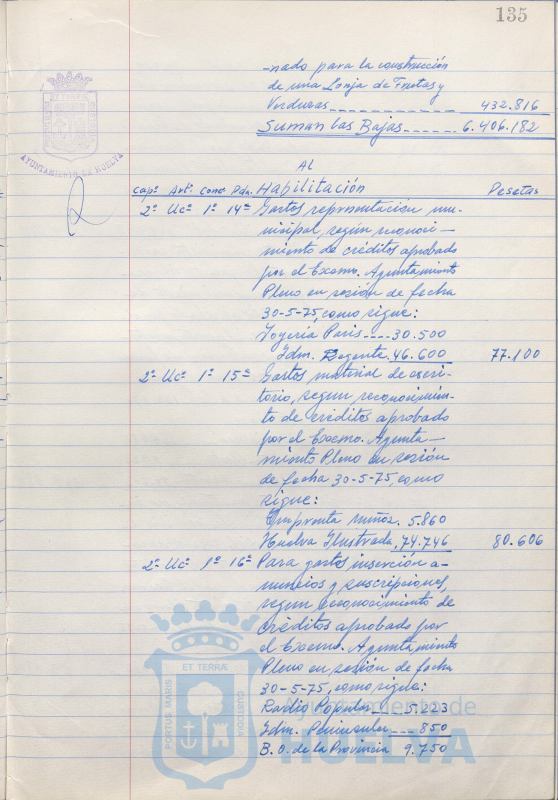 135
-nado para la construcción
de una Lonja de Frutas y
Verduras 432.816
Suman las Bajas 6.406.182
AYUNTAMIENTO DE HUELVA
AL
Capº Artº Concº Pda. Habilitación Pesetas
2º Ucº 1º 14ª Gastos representación mu-
nicipal, según reconoci-
miento de créditos aprobado
por el Excmo. Ayuntamiento
Pleno en sesión de fecha
30-5-75, como sigue:
Joyería Paris 30.500
Idm. Regente 46.600 77.100
2º Ucº 1º 15ª Gastos material de escri-
torio, segun reconocimien-
to de créditos aprobado
por el Excmo. Ayunta-
miento Pleno en sesión
de fecha 30-5-75, como
sigue:
Imprenta Muñoz. 5.860
Huelva Ilustrada, 74.746 80.606
2º Ucº 1º 16ª Para gastos inserción a-
nuncios y suscripciones,
segun reconocimiento de
créditos aprobado por
el Excmo. Ayuntamiento
Pleno en sesión de fecha
30-5-75, como sigue:
Radio Popular 5.223
Idm. Peninsular 850
B. O. de la Provincia 9.750
ET TERRÆ
PORTUS MARIS
CUSTODIA
Ayuntamiento de
HUELVA